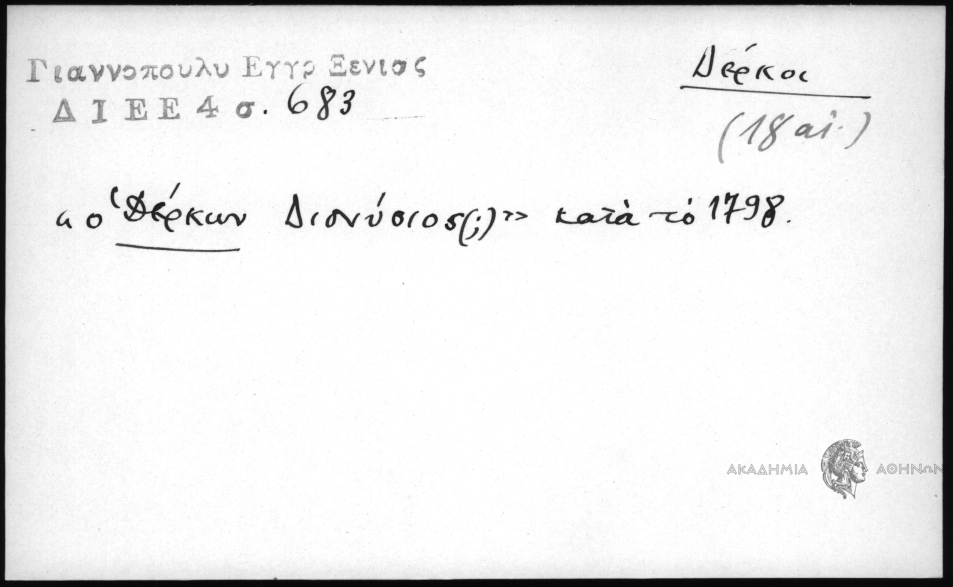 Γιαννοπουλυ Εγγρ Ξενιας
Δ Ι Ε Ε 4 σ. 683
Δέρκοι
(18 αἰ.)
« ὁ Δέρκων Διονύσιος(;)» κατὰ τὸ 1798.
ΑΚΑΔΗΜΙΑ ΑΘΗΝΩΝ